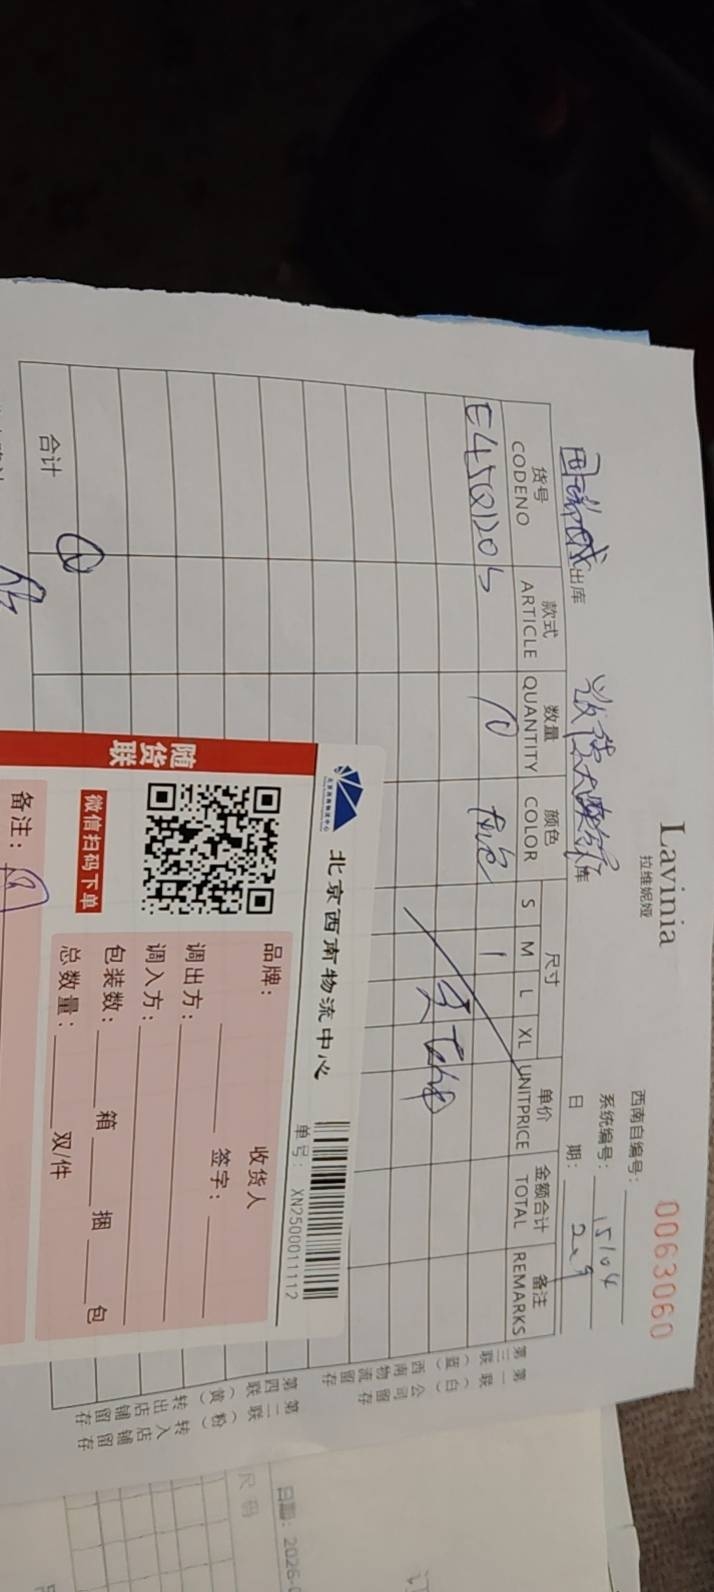 Lavinia
拉维妮娅
0063060
西南自编号:
系统编号: 15104
日 期: 2.9
出库
库
货号 款式 数量 颜色 尺寸 单价 金额合计 备注
CODENO ARTICLE QUANTITY COLOR S M L XL UNITPRICE TOTAL REMARKS
10 1
合计 ①
第一联(白)公司留存
第三联(蓝)西南物流留存
第二联(粉)转入店铺留存
第四联(黄)转出店铺留存
北京西南物流中心
单号: XN2500011112
随货联
微信扫码下单
品牌:
收货人
签字:
调出方:
调入方:
包装数: 箱 捆 包
总数量: 双/件
备注:
日期: 2026-